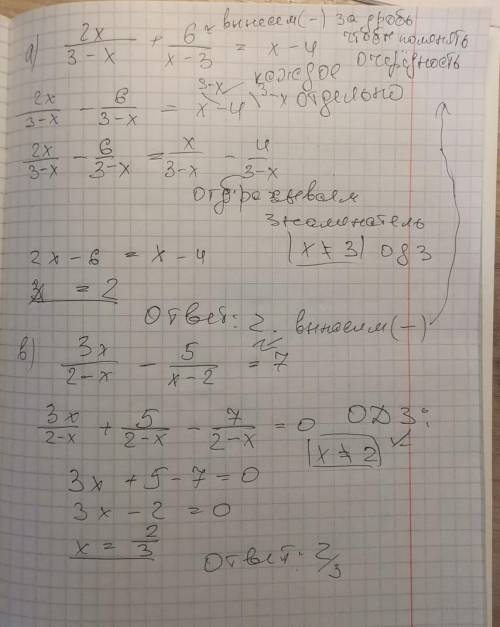 а) 2x/(3-x) + 6/(x-3) = x-4
вынесем (-) за дробь
чтобы поменять
очерёдность
2x/(3-x) - 6/(3-x) = x-4
3-x 3-x
каждое
отдельно
2x/(3-x) - 6/(3-x) = x/(3-x) - 4/(3-x)
знаменатель
2x-6 = x-4
x≠3 ОДЗ
x = 2
Ответ: 2.
вынесем (-)
в) 3x/(2-x) - 5/(x-2) = 7
3x/(2-x) + 5/(2-x) - 7/(2-x) = 0
ОДЗ:
x≠2
3x+5-7=0
3x-2=0
x = 2/3
Ответ: 2/3